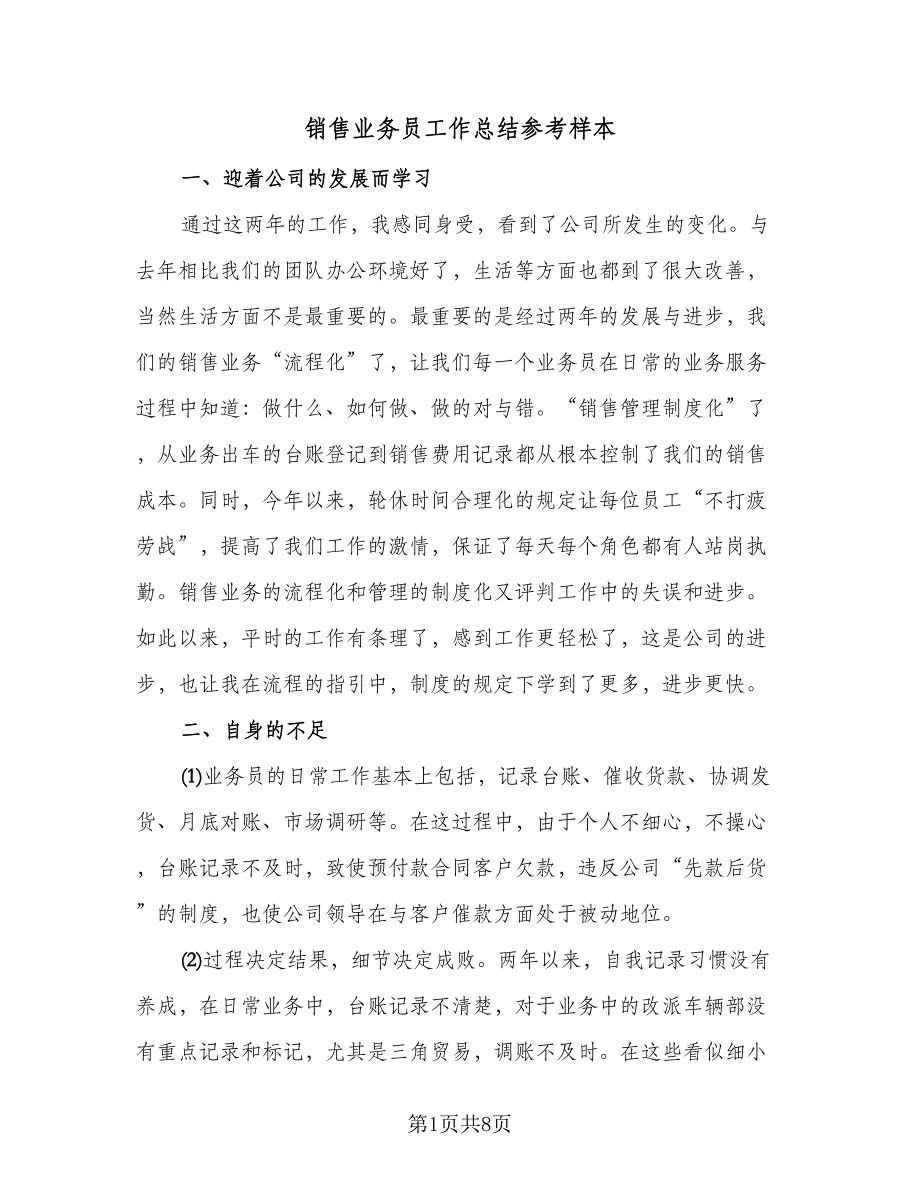 销售业务员工作总结参考样本
一、迎着公司的发展而学习
通过这两年的工作，我感同身受，看到了公司所发生的变化。与
去年相比我们的团队办公环境好了，生活等方面也都到了很大改善，
当然生活方面不是最重要的。最重要的是经过两年的发展与进步，我
们的销售业务“流程化”了，让我们每一个业务员在日常的业务服务
过程中知道：做什么、如何做、做的对与错。“销售管理制度化”了
，从业务出车的台账登记到销售费用记录都从根本控制了我们的销售
成本。同时，今年以来，轮休时间合理化的规定让每位员工“不打疲
劳战”，提高了我们工作的激情，保证了每天每个角色都有人站岗执
勤。销售业务的流程化和管理的制度化又评判工作中的失误和进步。
如此以来，平时的工作有条理了，感到工作更轻松了，这是公司的进
步，也让我在流程的指引中，制度的规定下学到了更多，进步更快。
二、自身的不足
⑴业务员的日常工作基本上包括，记录台账、催收货款、协调发
货、月底对账、市场调研等。在这过程中，由于个人不细心，不操心
，台账记录不及时，致使预付款合同客户欠款，违反公司“先款后货
”的制度，也使公司领导在与客户催款方面处于被动地位。
⑵过程决定结果，细节决定成败。两年以来，自我记录习惯没有
养成，在日常业务中，台账记录不清楚，对于业务中的改派车辆部没
有重点记录和标记，尤其是三角贸易，调账不及时。在这些看似细小
第1页共8页